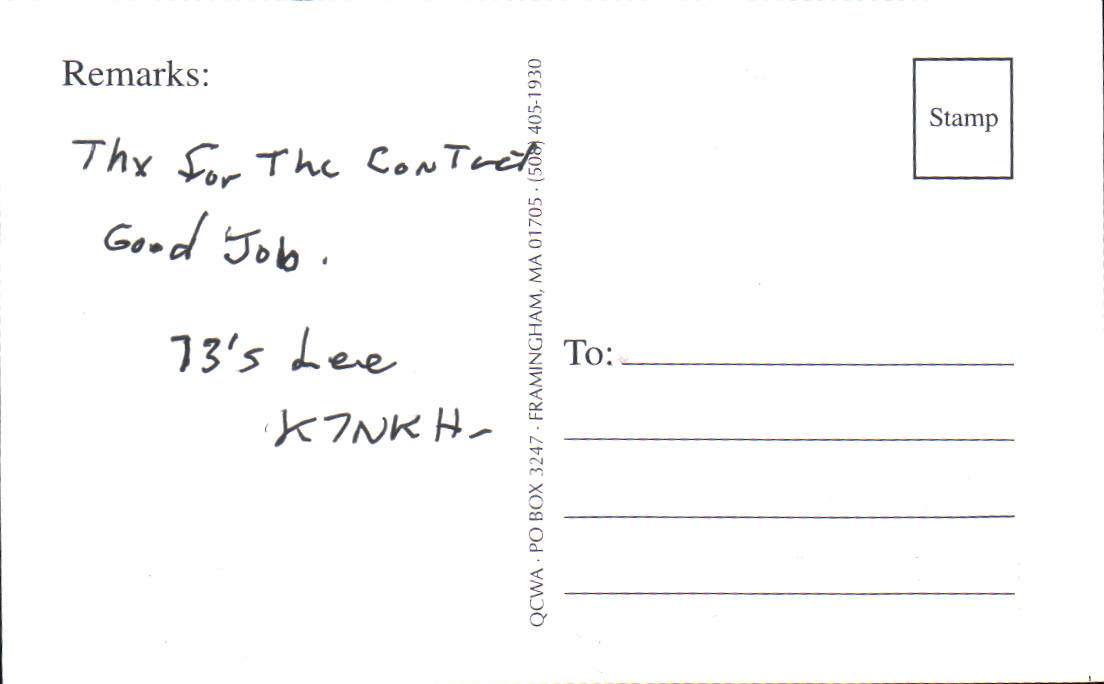 Remarks:
Thx for The Contact
Good Job.
73's Lee
K7NKH-
QCWA · PO BOX 3247 · FRAMINGHAM, MA 01705 · (508) 405-1930
Stamp
To: